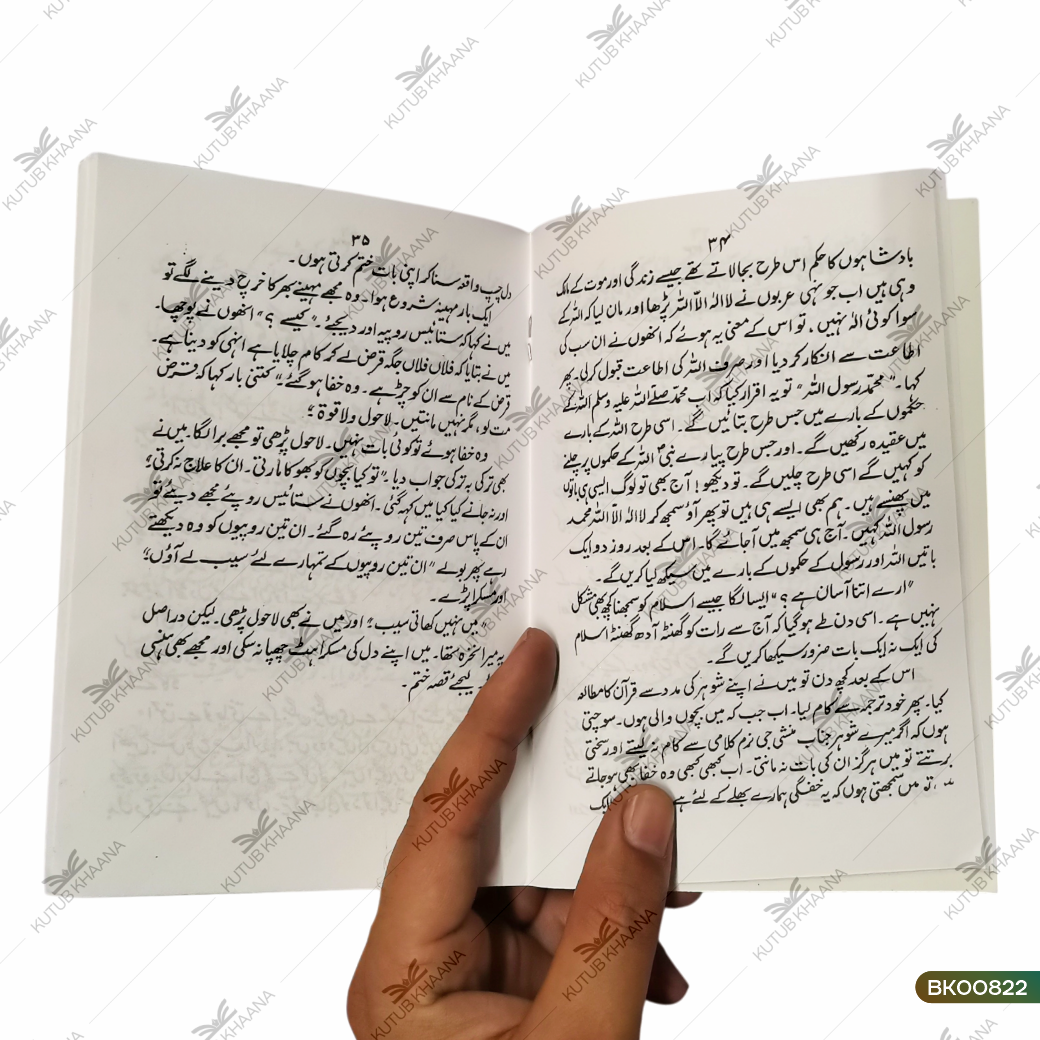 ۳۴
بادشاہوں کا حکم اس طرح بجالاتے تھے جیسے زندگی اور موت کے مالک
وہی ہیں اب جو نہی عربوں نے لا الٰہ الّا اللہ پڑھا اور مان لیا کہ اللہ کے
سوا کوئی الٰہ نہیں، تو اس کے معنی یہ ہوئے کہ انھوں نے ان سب کی
اطاعت سے انکار کر دیا اور صرف اللہ کی اطاعت قبول کرلی۔ پھر
کہا۔ "محمّد رسول اللہ" تو یہ اقرار کیا کہ اب محمّد صلے اللہ علیہ وسلم اللہ کے
حکموں کے بارے میں جس طرح بتائیں گے۔ اسی طرح اللہ کے بارے
میں عقیدہ رکھیں گے۔ اور جس طرح پیارے نبیؐ اللہ کے حکموں پر چلنے
کو کہیں گے اسی طرح چلیں گے۔ تو دیکھو! آج بھی تو لوگ ایسی ہی باتوں
میں پھنسے ہیں۔ ہم بھی ایسے ہی ہیں تو پھر آؤ سمجھ کر لا الٰہ الّا اللہ محمد
رسول اللہ کہیں۔ آج ہی سمجھ میں آجائے گا۔ اس کے بعد روز دو ایک
باتیں اللہ اور رسول کے حکموں کے بارے میں سیکھ لیا کریں گے۔
"ارے اتنا آسان ہے؟" ایسا لگا جیسے اسلام کو سمجھنا کچھ بھی مشکل
نہیں ہے۔ اسی دن طے ہو گیا کہ آج سے رات کو گھنٹہ آدھ گھنٹہ اسلام
کی ایک نہ ایک بات ضرور سیکھا کریں گے۔
اس کے بعد کچھ دن تو میں نے اپنے شوہر کی مدد سے قرآن کا مطالعہ
کیا۔ پھر خود ترجمہ سے کام لیا۔ اب جب کہ میں بچوں والی ہوں۔ سوچتی
ہوں کہ اگر میرے شوہر جناب منشی جی نرم کلامی سے کام نہ لیتے اور سختی
برتتے تو میں ہرگز ان کی بات نہ مانتی۔ اب کبھی کبھی وہ خفا بھی ہو جاتے
تو میں سمجھتی ہوں کہ یہ خفگی ہمارے بھلے کے لئے ہے ایک
۳۵
دل چسپ واقعہ سنا کر اپنی بات ختم کرتی ہوں۔
ایک بار مہینہ شروع ہوا۔ وہ مجھے مہینے بھر کا خرچ دینے لگے تو
میں نے کہا کہ ستائیس روپیہ اور دیجئے۔ "کیسے؟" انھوں نے پوچھا۔
میں نے بتایا کہ فلاں فلاں جگہ قرض لے کر کام چلایا ہے انہی کو دینا ہے۔
قرض کے نام سے ان کو چڑ ہے۔ وہ خفا ہو گئے "کتنی بار کہا کہ قرض
مت لو، مگر نہیں مانتیں۔ لاحول ولا قوۃ"
وہ خفا ہوئے تو کوئی بات نہیں۔ لاحول پڑھی تو مجھے برا لگا۔ میں نے
بھی ترکی بہ ترکی جواب دیا۔ "تو کیا بچوں کو بھوکا مارتی۔ ان کا علاج نہ کرتی"
اور نہ جانے کیا کیا میں کہہ گئی۔ انھوں نے ستائیس روپئے مجھے دیئے تو
ان کے پاس صرف تین روپئے رہ گئے۔ ان تین روپیوں کو وہ دیکھتے
رہے پھر بولے "ان تین روپیوں کے تمہارے لئے سیب لے آؤں"
اور مسکرا پڑے۔
"میں نہیں کھاتی سیب" اور میں نے بھی لاحول پڑھی۔ لیکن دراصل
یہ میرا نخرہ تھا۔ میں اپنے دل کی مسکراہٹ چھپا نہ سکی اور مجھے بھی ہنسی
لیجئے قصہ ختم۔
KUTUB KHAANA
BK00822